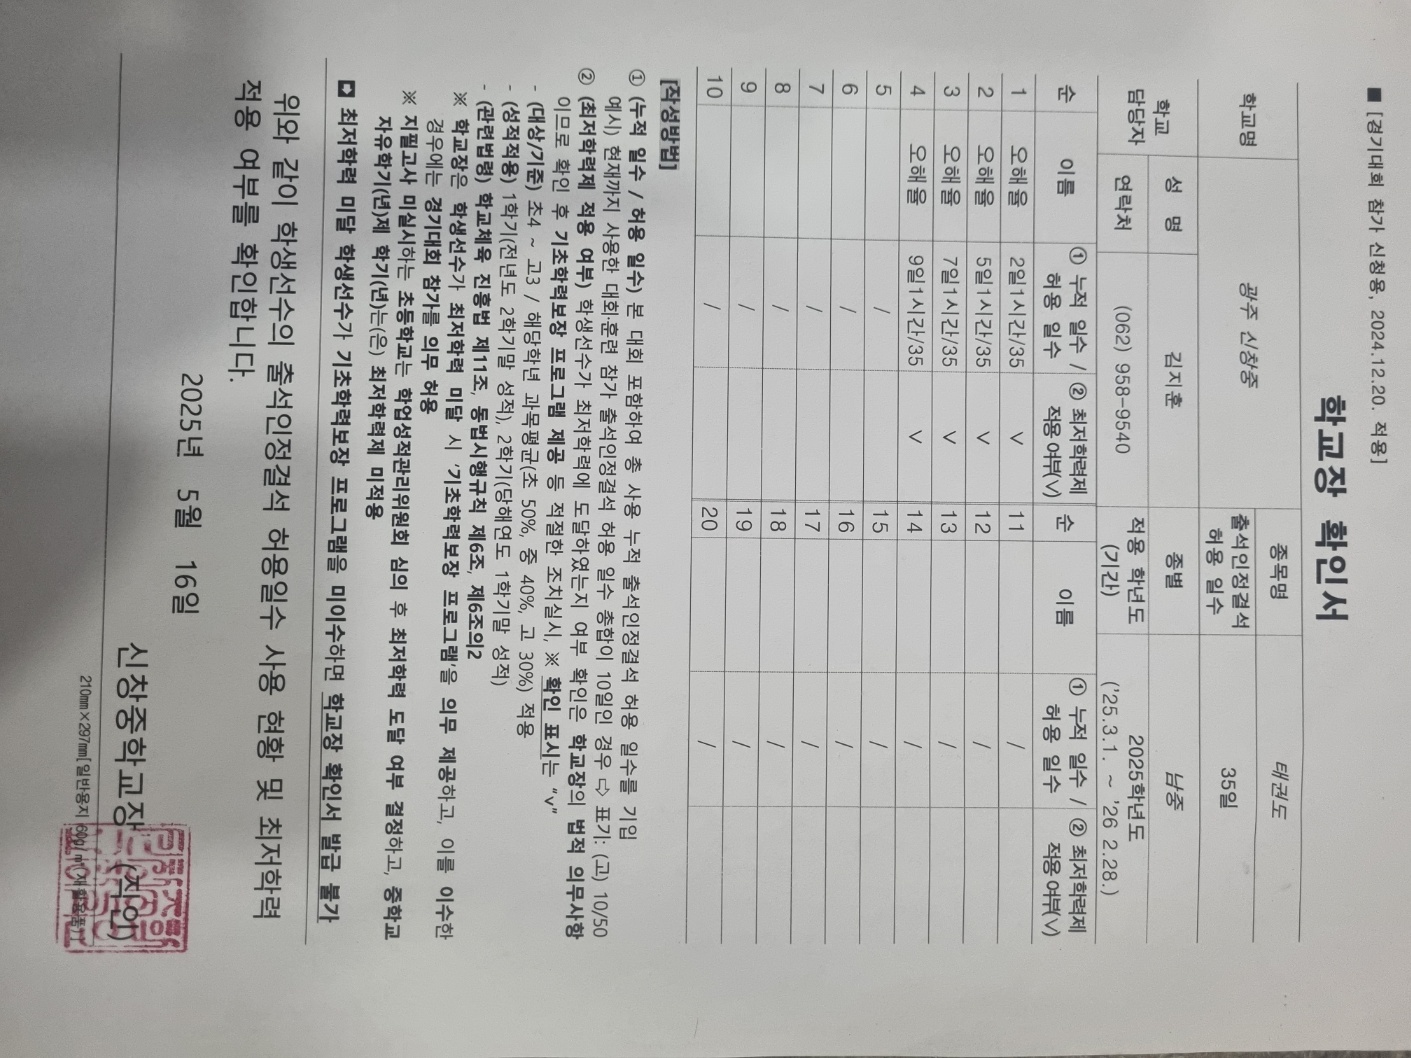 ■ [경기대회 참가 신청용, 2024.12.20. 적용]
학교장 확인서
학교명 광주 신창중 종목명 태권도
출석인정결석 허용 일수 35일
학교 담당자 성 명 김지훈 종별 남중
연락처 (062) 958-9540 적용 학년도 (기간) 2025학년도 ('25.3.1. ~ '26 2.28.)
순 이름 ① 누적 일수 / 허용 일수 ② 최저학력제 적용여부(V) 순 이름 ① 누적 일수 / 허용 일수 ② 최저학력제 적용여부(V)
1 오해율 2일1시간/35 V 11 /
2 오해율 5일1시간/35 V 12 /
3 오해율 7일1시간/35 V 13 /
4 오해율 9일1시간/35 V 14 /
5 / 15 /
6 / 16 /
7 / 17 /
8 / 18 /
9 / 19 /
10 / 20 /
[작성방법]
① (누적 일수 / 허용 일수) 본 대회 포함하여 총 사용 누적 출석인정결석 허용 일수를 기입
예시) 현재까지 사용한 대회·훈련 참가 출석인정결석 허용 일수 총합이 10일인 경우 ⇨ 표기: (고) 10/50
② (최저학력제 적용 여부) 학생선수가 최저학력에 도달하였는지 여부 확인은 학교장의 법적 의무사항
이므로 확인 후 기초학력보장 프로그램 제공 등 적절한 조치실시, ※ 확인 표시는 "v"
- (대상/기준) 초4 ~ 고3 / 해당학년 과목평균(초 50%, 중 40%, 고 30%) 적용
- (성적적용) 1학기(전년도 2학기말 성적), 2학기(당해연도 1학기말 성적)
- (관련법령) 학교체육 진흥법 제11조, 동법시행규칙 제6조, 제6조의2
※ 학교장은 학생선수가 최저학력 미달 시 '기초학력보장 프로그램'을 의무 제공하고, 이를 이수한
경우에는 경기대회 참가를 의무 허용
※ 지필고사 미실시하는 초등학교는 학업성적관리위원회 심의 후 최저학력 도달 여부 결정하고, 중학교
자유학기(년)제 학기(년)는(은) 최저학력제 미적용
➡ 최저학력 미달 학생선수가 기초학력보장 프로그램을 미이수하면 학교장 확인서 발급 불가
위와 같이 학생선수의 출석인정결석 허용일수 사용 현황 및 최저학력
적용 여부를 확인합니다.
2025년 5월 16일
신창중학교장 (직인)
210㎜×297㎜[일반용지 60g/㎡ 재활용품]